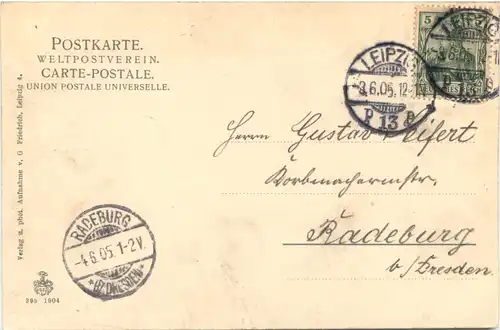 POSTKARTE.
WELTPOSTVEREIN.
CARTE-POSTALE.
UNION POSTALE UNIVERSELLE.
Verlag u. phot. Aufnahme v. G Friedrich, Leipzig 4.
395 1904
5
LEIPZIG
3.6.05. 12-
P 13 P
LEIPZIG
6.05
13
Herrn Gustav Seifert
Korbmachermstr.
Radeburg
b/Dresden
RADEBURG
-4.6.05. 1-2V.
* BZ. DRESDEN *